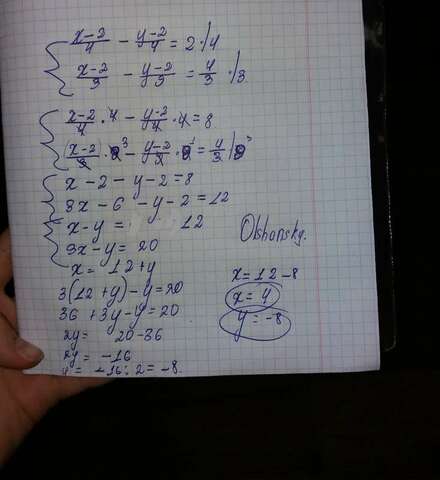 x-2/4 - y-2/4 = 2 ·/4
x-2/3 - y-2/3 = 4/3 ·/3
x-2/4 · 4 - y-2/4 · 4 = 8
(x-2)/3 · 3 - y-2/3 · = 4/3 /
x - 2 - y - 2 = 8
3x - 6 - y - 2 = 12
x - y = 12
3x - y = 20
x = 12 + y
3(12 + y) - y = 20
36 + 3y - y = 20
2y = 20 - 36
2y = -16
y = -16 : 2 = -8
Olshansky.
x = 12 - 8
x = 4
y = -8